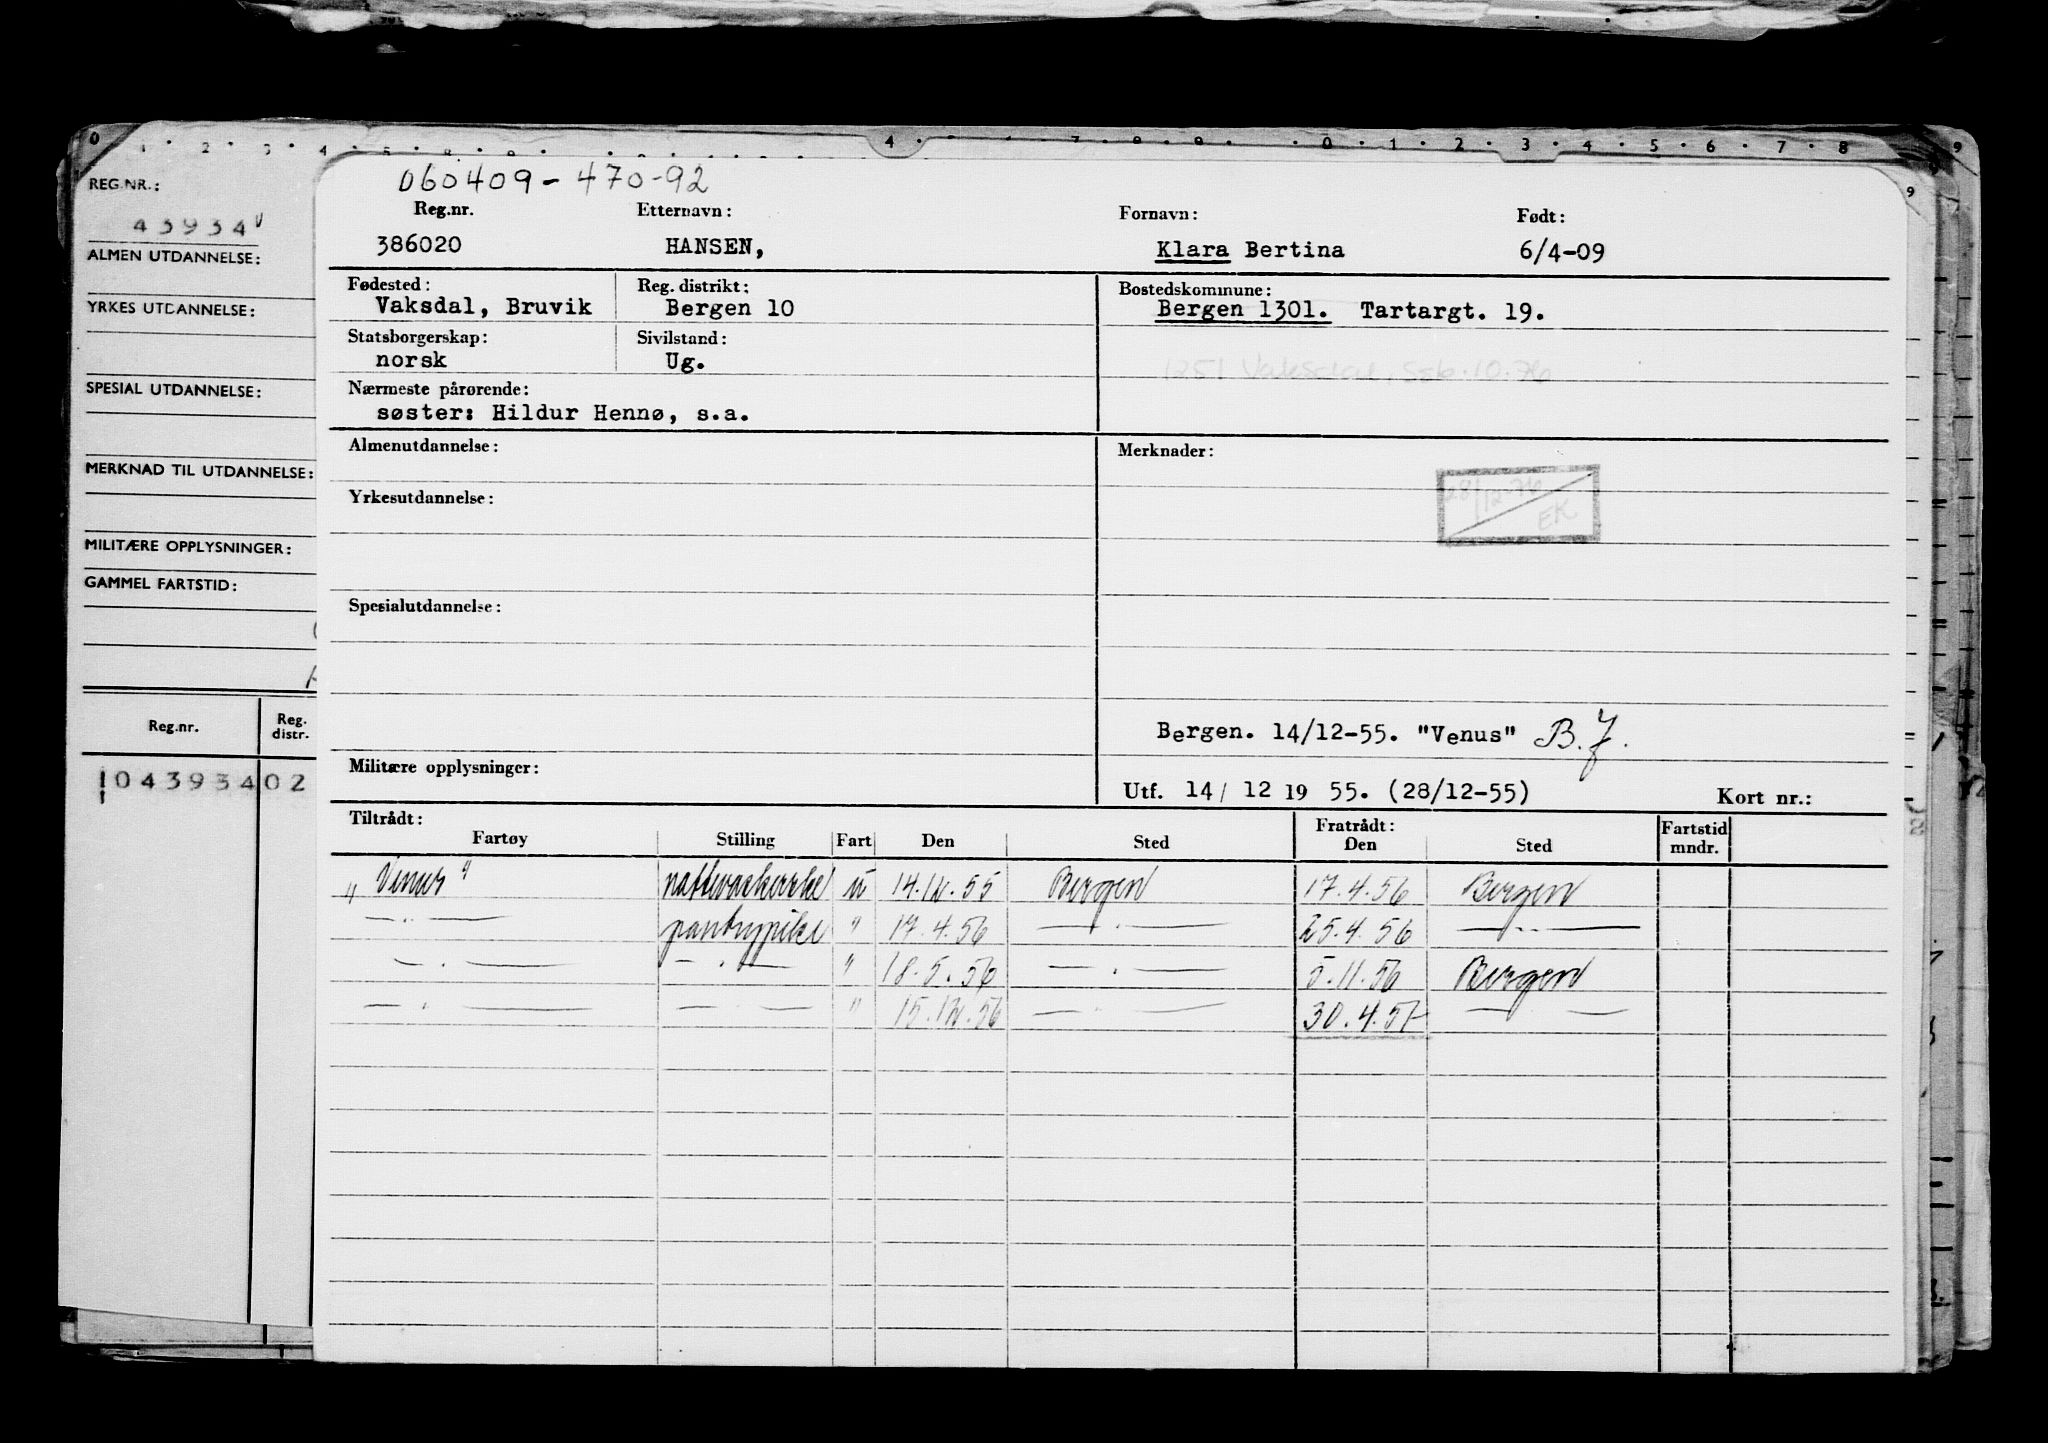 0 1 2 3 4 5 8 9 4 7 8 9 0 1 2 3 4 5 6 7 8 9
REG.NR.:
43934
ALMEN UTDANNELSE:
YRKES UTDANNELSE:
SPESIAL UTDANNELSE:
MERKNAD TIL UTDANNELSE:
MILITÆRE OPPLYSNINGER:
GAMMEL FARTSTID:
Reg.nr. Reg. distr.
04393402
060409-470-92
Reg.nr. Etternavn: Fornavn: Født:
386020 HANSEN, Klara Bertina 6/4-09
Fødested: Reg. distrikt: Bostedskommune:
Vaksdal, Bruvik Bergen 10 Bergen 1301. Tartargt. 19.
Statsborgerskap: Sivilstand:
norsk Ug.
1251 Vaksdal, Seb. 10.76
Nærmeste pårørende:
søster: Hildur Hennø, s.a.
Almenutdannelse: Merknader:
28/12-76
EK
Yrkesutdannelse:
Spesialutdannelse:
Bergen. 14/12-55. "Venus" B.J.
Militære opplysninger:
Utf. 14/ 12 19 55. (28/12-55) Kort nr.:
Tiltrådt: Fratrådt: Fartstid
Fartøy Stilling Fart Den Sted Den Sted mndr.
"Venus" u 14.12.55 Bergen 17.4.56 Bergen
—"— pantrypike " 17.4.56 —"— 25.4.56 —"—
—"— —"— " 18.5.56 —"— 5.11.56 Bergen
—"— —"— " 15.12.56 —"— 30.4.57 —"—